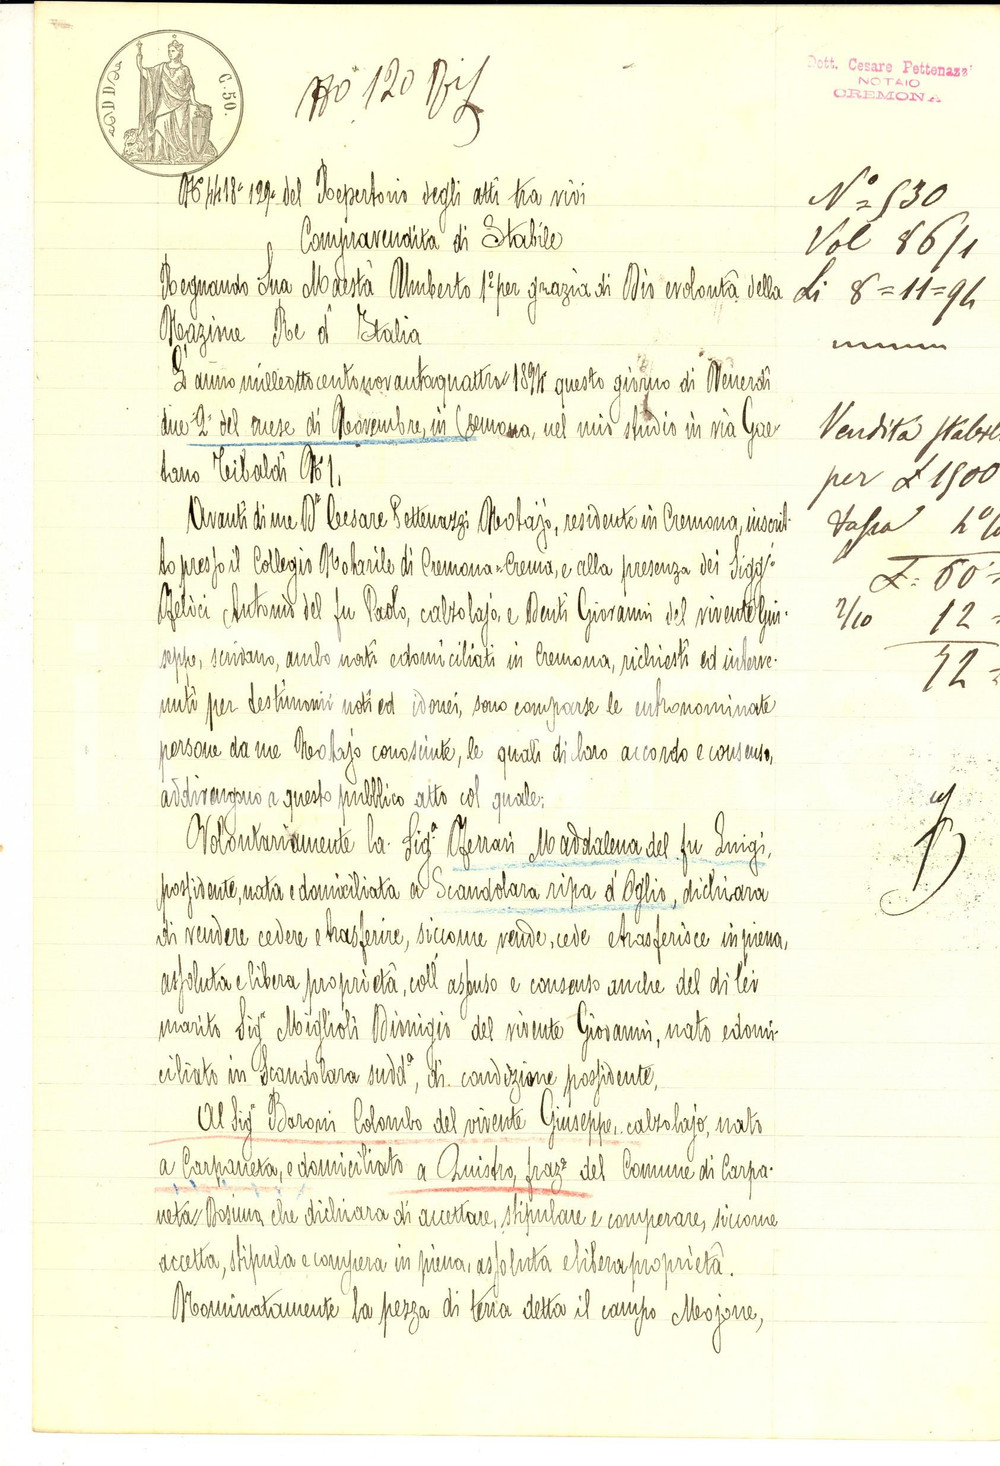 C. 50.
No 120 Bis
Dott. Cesare Pettenazzi
NOTAIO
CREMONA
del Repertorio degli atti tra vivi
Compravendita di Stabile
Regnando Sua Maestà Umberto 1° per grazia di Dio e volontà della
Nazione Re d'Italia
L'anno milleottocentonovantaquattro 1894 questo giorno di Venerdì
due 2 del mese di Novembre, in Cremona, nel mio studio in via Gae-
tano Tibaldi N 1.
Avanti di me Dr Cesare Pettenazzi Notajo, residente in Cremona, inscrit-
to presso il Collegio Notarile di Cremona-Crema, e alla presenza dei Sigg.i
Antonio del fu Paolo, calzolajo, e Denti Giovanni del vivente Giu-
seppe, scrivano, ambo nati e domiciliati in Cremona, richiesti ed interve-
nuti per testimoni noti ed idonei, sono comparse le entronominate
persone da me Notajo conosciute, le quali di loro accordo e consenso,
addivengono a questo pubblico atto col quale:
Volontariamente la Sig.a Ferrari Maddalena del fu Luigi,
possidente, nata e domiciliata a Scandolara ripa d'Oglio, dichiara
di vendere cedere e trasferire, siccome vende, cede e trasferisce in piena,
assoluta e libera proprietà, coll'assenso e consenso anche del di lei
marito Sig.r Miglioli Dionigio del vivente Giovanni, nato e domi-
ciliato in Scandolara sudd.a, di condizione possidente,
Al Sig.r Baroni Colombo del vivente Giuseppe, calzolajo, nato
a Carpaneta, e domiciliato a Quistro, fraz.e del Comune di Carpa-
neta Dosimo, che dichiara di accettare, stipulare e comperare, siccome
accetta, stipula e compera in piena, assoluta e libera proprietà.
Nominatamente la pezza di terra detta il campo Mojone,
N° 530
Vol 86/1
Li 8=11=94
Vendita stabile
per £ 1500
Tassa 4%
£. 60=
2/10 12=
72=